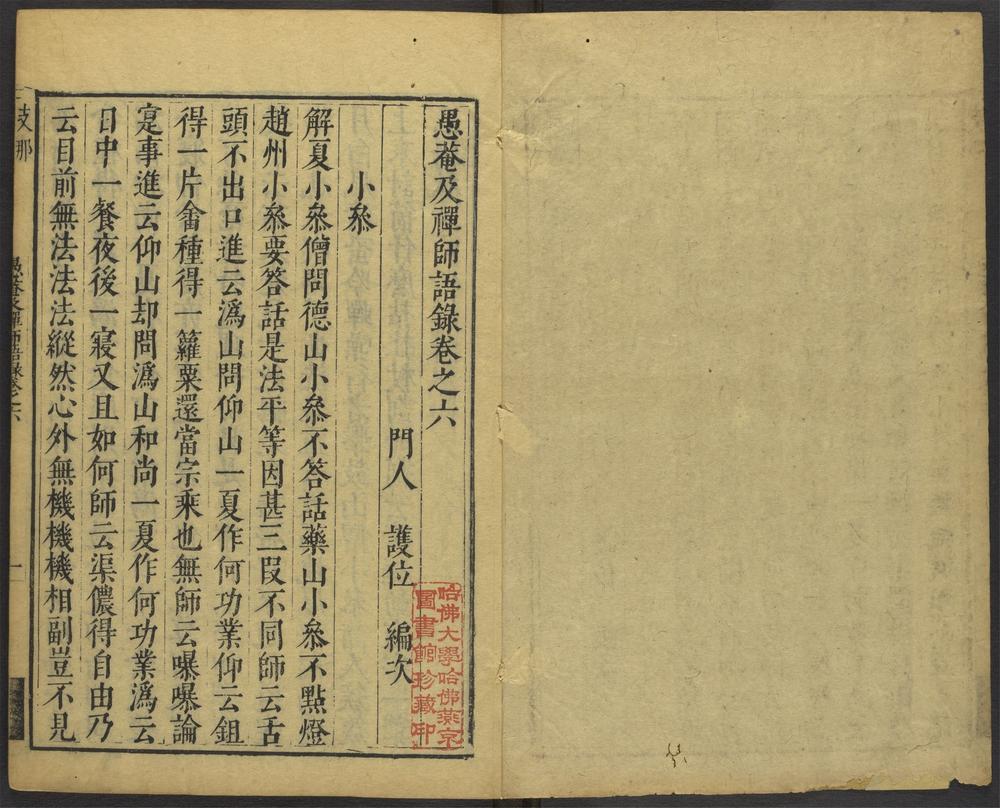 愚菴及禪師語錄卷之六
門人　護位　編次
小叅
解夏小叅僧問德山小叅不答話藥山小叅不點燈
趙州小叅要答話是法平等因甚三叚不同師云舌
頭不出口進云潙山問仰山一夏作何功業仰云鉏
得一片畬種得一籮粟還當宗乘也無師云曝曝論
寔事進云仰山却問潙山和尚一夏作何功業潙云
日中一餐夜後一寢又且如何師云渠儂得自由乃
云目前無法法法縱然心外無機機機相副豈不見
哈佛大學哈佛燕京
圖書館珍藏印
愚菴及禪師語錄卷之六
一